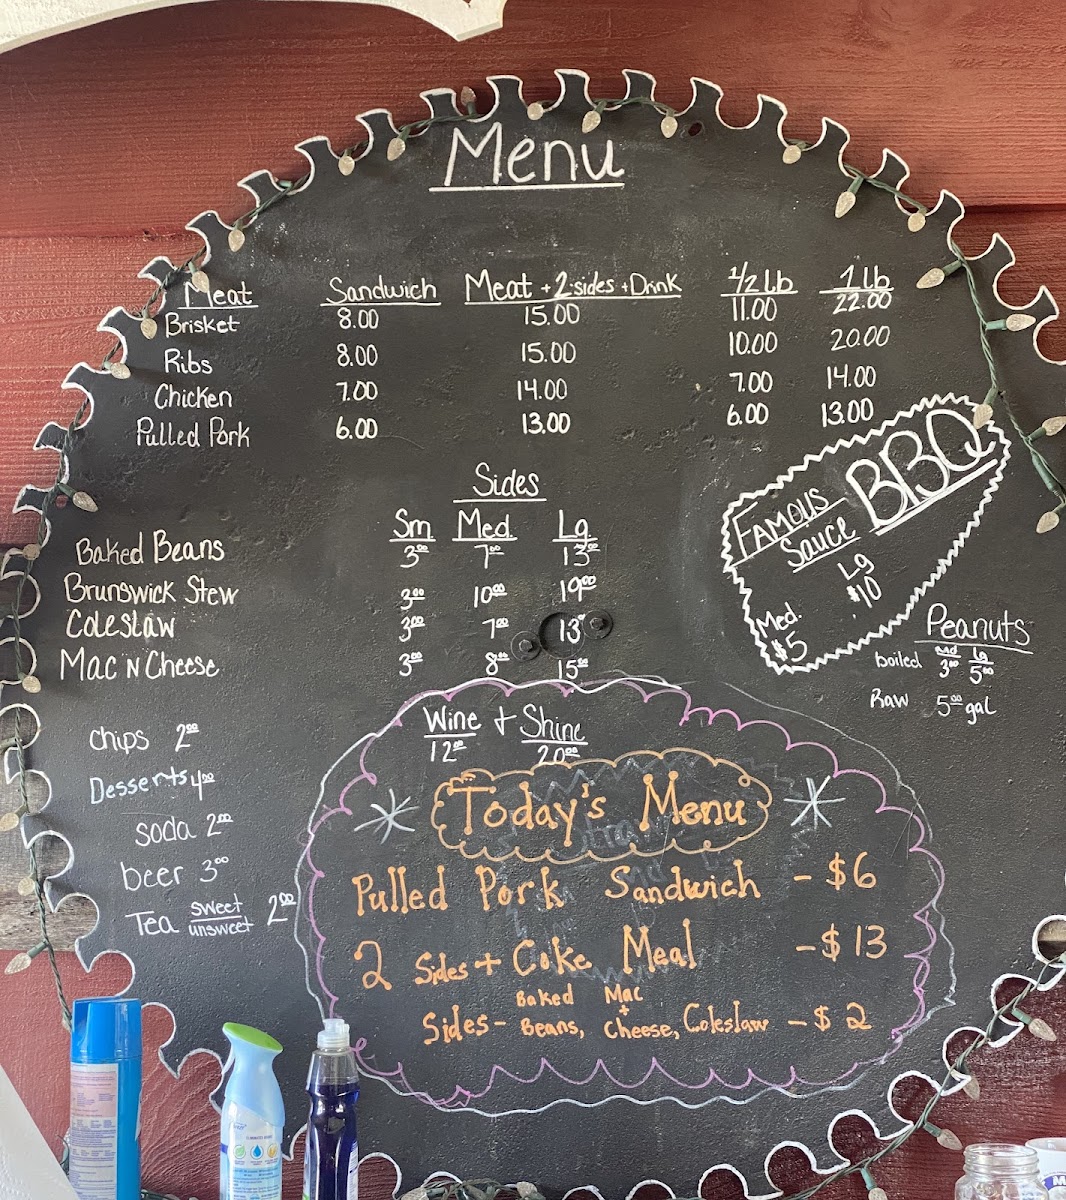 Menu
Meat Sandwich Meat + 2 sides + Drink 1/2 lb 1 lb
Brisket 8.00 15.00 11.00 22.00
Ribs 8.00 15.00 10.00 20.00
Chicken 7.00 14.00 7.00 14.00
Pulled Pork 6.00 13.00 6.00 13.00
Sides
Sm Med. Lg
Baked Beans 3.00 7.00 13.00
Brunswick Stew 3.00 10.00 19.00
Coleslaw 3.00 7.00 13.00
Mac N Cheese 3.00 8.00 15.00
FAMOUS BBQ
Sauce
Med. Lg
$5 $10
Peanuts
Md Lg
boiled 3.00 5.00
Raw 5.00 gal
chips 2.00
Desserts 4.00
soda 2.00
beer 3.00
Tea sweet unsweet 2.00
Wine + Shine
12.00 20.00
Today's Menu
Pulled Pork Sandwich - $6
2 Sides + Coke Meal - $13
Sides - Baked Beans, Mac + Cheese, Coleslaw - $2